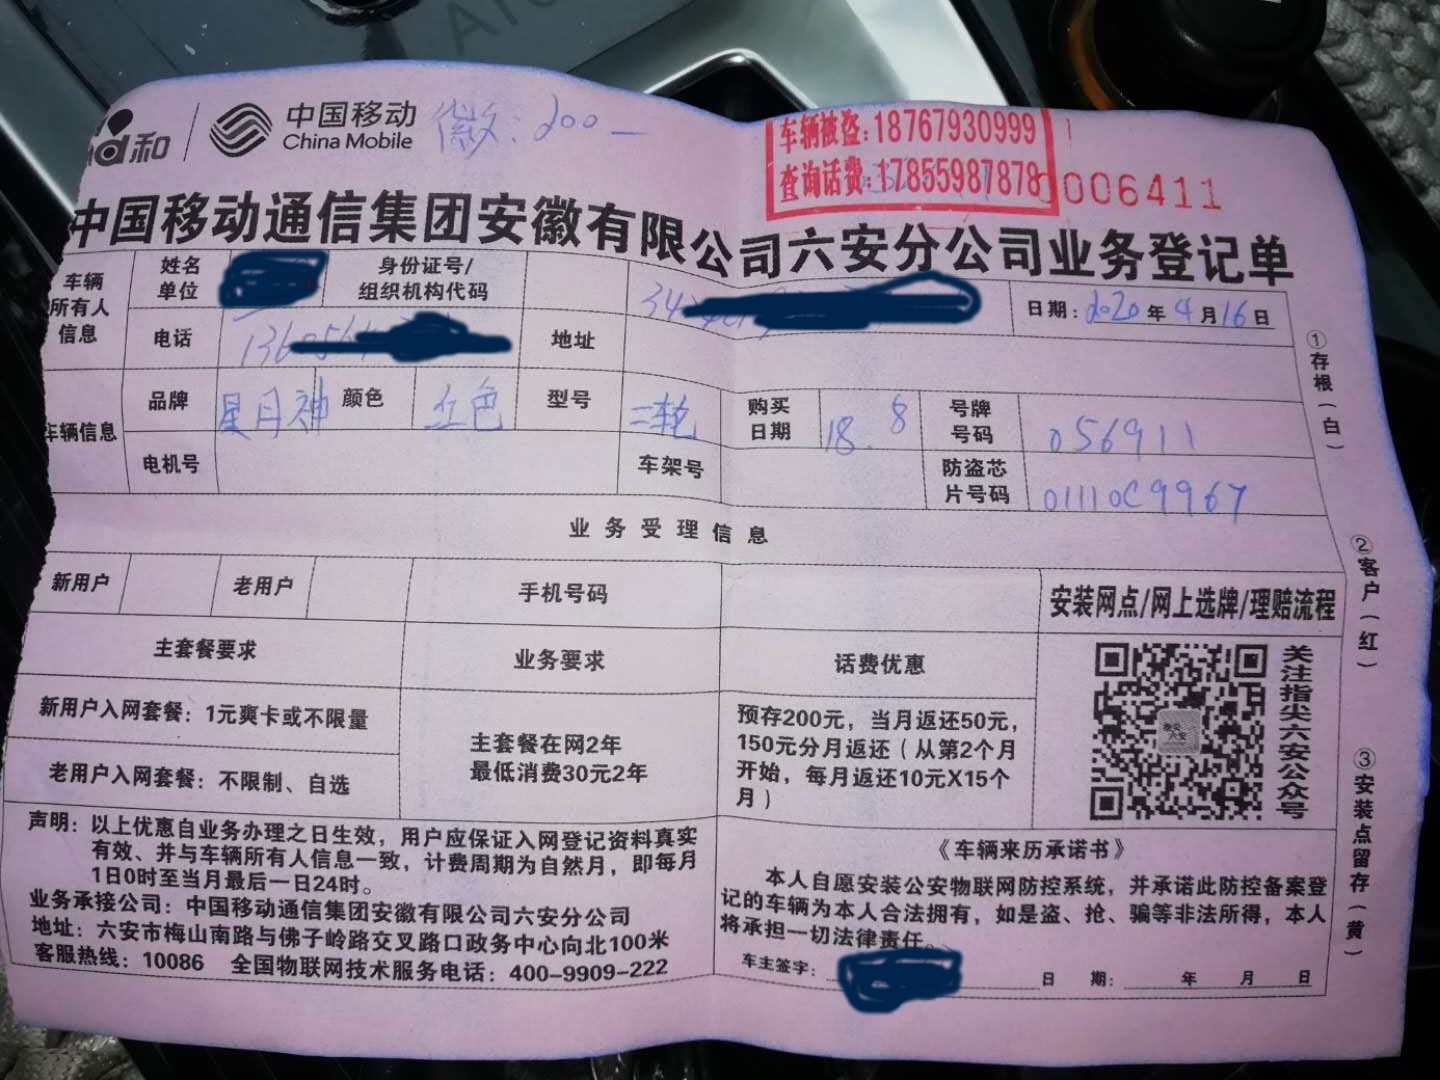 和 中国移动 China Mobile 徽: 200—
车辆被盗:18767930999
查询话费:17855987878
0006411
中国移动通信集团安徽有限公司六安分公司业务登记单
车辆所有人信息 姓名单位 身份证号/组织机构代码 34 日期:2020年4月16日
电话 地址
车辆信息 品牌 星月神 颜色 红色 型号 二轮 购买日期 18.8 号牌号码 056911
电机号 车架号 防盗芯片号码 01110C9967
业务受理信息
新用户 老用户 手机号码 安装网点/网上选牌/理赔流程
主套餐要求 业务要求 话费优惠
新用户入网套餐:1元爽卡或不限量
老用户入网套餐:不限制、自选
主套餐在网2年
最低消费30元2年
预存200元,当月返还50元,
150元分月返还(从第2个月
开始,每月返还10元X15个
月)
关注指尖六安公众号
声明:以上优惠自业务办理之日生效,用户应保证入网登记资料真实
有效、并与车辆所有人信息一致,计费周期为自然月,即每月
1日0时至当月最后一日24时。
业务承接公司:中国移动通信集团安徽有限公司六安分公司
地址:六安市梅山南路与佛子岭路交叉路口政务中心向北100米
客服热线:10086 全国物联网技术服务电话:400-9909-222
《车辆来历承诺书》
本人自愿安装公安物联网防控系统,并承诺此防控备案登
记的车辆为本人合法拥有,如是盗、抢、骗等非法所得,本人
将承担一切法律责任。
车主签字: 日 期: 年 月 日
①存根(白)
②客户(红)
③安装点留存(黄)